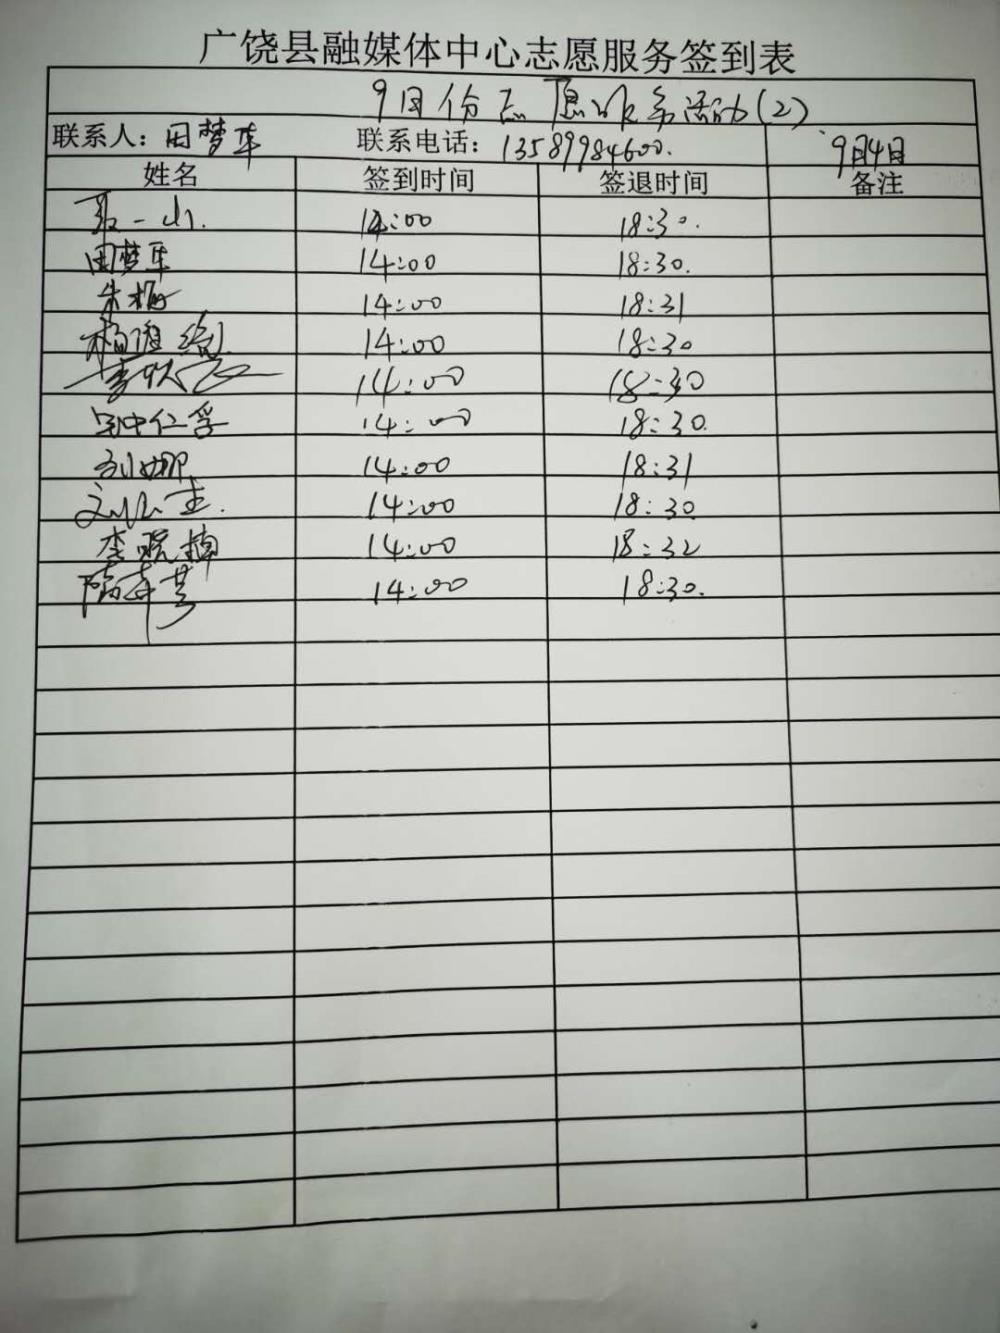 广饶县融媒体中心志愿服务签到表
9月份志愿服务活动(2)
联系人: 田梦军 联系电话: 13589984600. 9月4日
姓名 签到时间 签退时间 备注
14:00 18:30.
田梦军 14:00 18:30.
朱梅 14:00 18:31
14:00 18:30
14:00 18:30
14:00 18:30.
刘娜 14:00 18:31
14:00 18:30
李晓梅 14:00 18:32
14:00 18:30.